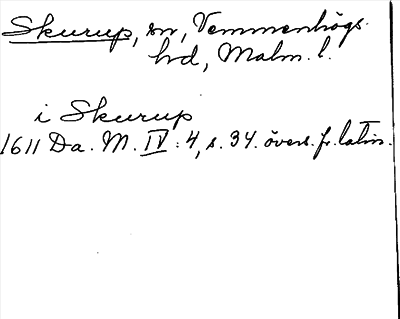 Skurup, sn, Vemmenhögs
hd, Malm. l.
i Skurup
1611 Da. M. IV: 4, s. 34. övers. fr. latin.